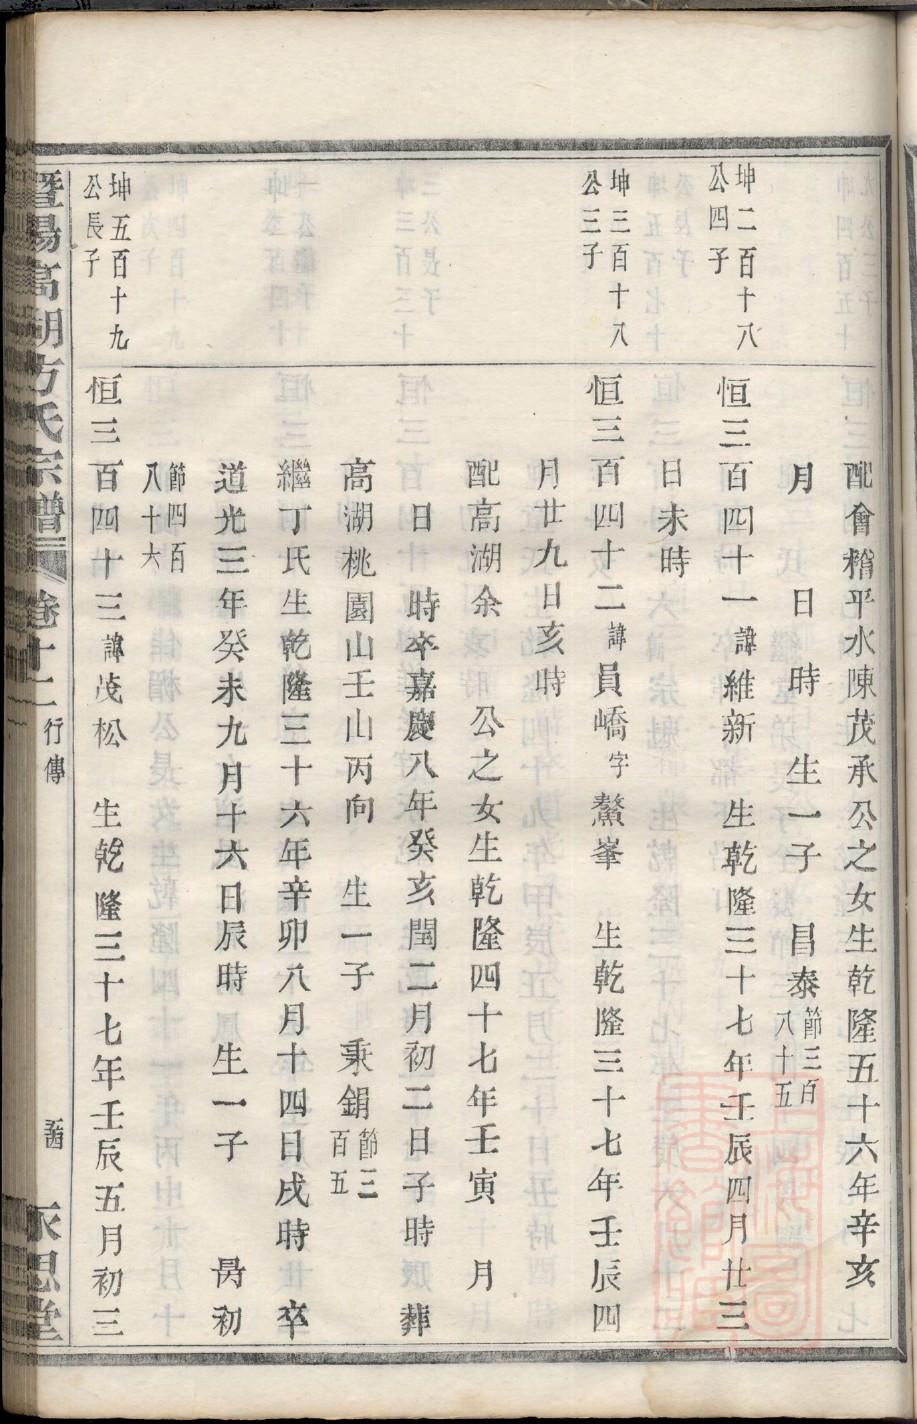 配會稽平水陳茂承公之女生乾隆五十六年辛亥
月　日　時　生一子　昌泰節三百八十五
坤二百十八公四子
恒三百四十一諱維新　生乾隆三十七年壬辰四月廿三
日未時
坤三百十八公三子
恒三百四十二諱員嶠字鰲峯　生乾隆三十七年壬辰四
月廿九日亥時
配高湖余　公之女生乾隆四十七年壬寅　月
日　時卒嘉慶八年癸亥閏二月初二日子時　葬
高湖桃園山壬山丙向　生一子　秉鋗節三百五
繼丁氏生乾隆三十六年辛卯八月十四日戌時　卒
道光三年癸未九月十六日辰時　生一子　昺初
節四百八十六
坤五百十九公長子
恒三百四十三諱茂松　生乾隆三十七年壬辰五月初三
暨陽高湖方氏宗譜　卷十一　行傳　永思堂